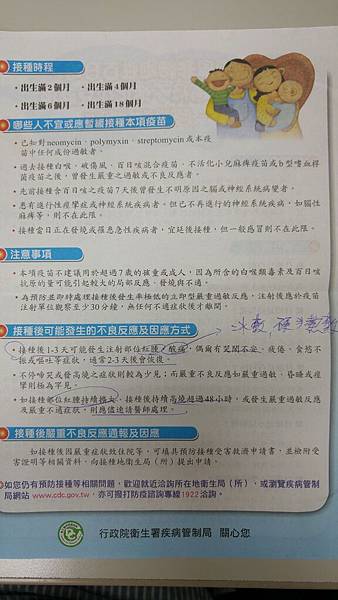 接種時程
・出生滿2個月 ・出生滿4個月
・出生滿6個月 ・出生滿18個月
哪些人不宜或應暫緩接種本項疫苗
・已知對neomycin、polymyxin、streptomycin或本疫
苗中任何成份過敏者。
・過去接種白喉、破傷風、百日咳混合疫苗、不活化小兒麻痺疫苗或b型嗜血桿
菌疫苗之後，曾發生嚴重之過敏或不良反應者。
・先前接種含百日咳之疫苗7天後曾發生不明原因之腦或神經系統病變者。
・患有進行性痙攣或神經系統疾病者。但已不再進行的神經系統疾病，如腦性
麻痺等，則不在此限。
・接種當日正在發燒或罹患急性疾病者，宜延後接種，但一般感冒則不在此限。
注意事項
・本項疫苗不建議用於超過7歲的孩童或成人，因為所含的白喉類毒素及百日咳
抗原的量可能引起較大的局部反應、發燒與不適。
・為預防並即時處理接種後發生率極低的立即型嚴重過敏反應，注射後應於疫苗
注射單位觀察至少30分鐘，無任何不適症狀後才離開。
接種後可能發生的不良反應及因應方式
冰敷
・接種後1-3天可能發生注射部位紅腫、酸痛，偶爾有哭鬧不安、疲倦、食慾不
振或嘔吐等症狀，通常2-3天後會恢復。
・不停啼哭或發高燒之症狀則較為少見；而嚴重不良反應如嚴重過敏、昏睡或痙
攣則極為罕見。
・如接種部位紅腫持續擴大、接種後持續高燒超過48小時，或發生嚴重過敏反應
及嚴重不適症狀，則應儘速請醫師處理。
接種後嚴重不良反應通報及因應
如接種後因嚴重症狀就住院等，可填具預防接種受害救濟申請書，並檢附受
害證明等相關資料，向接種地衛生局（所）提出申請。
如您仍有預防接種等相關問題，歡迎就近洽詢所在地衛生局（所），或瀏覽疾病管制
局網站 www.cdc.gov.tw，亦可撥打防疫諮詢專線1922洽詢。
行政院衛生署疾病管制局 關心您